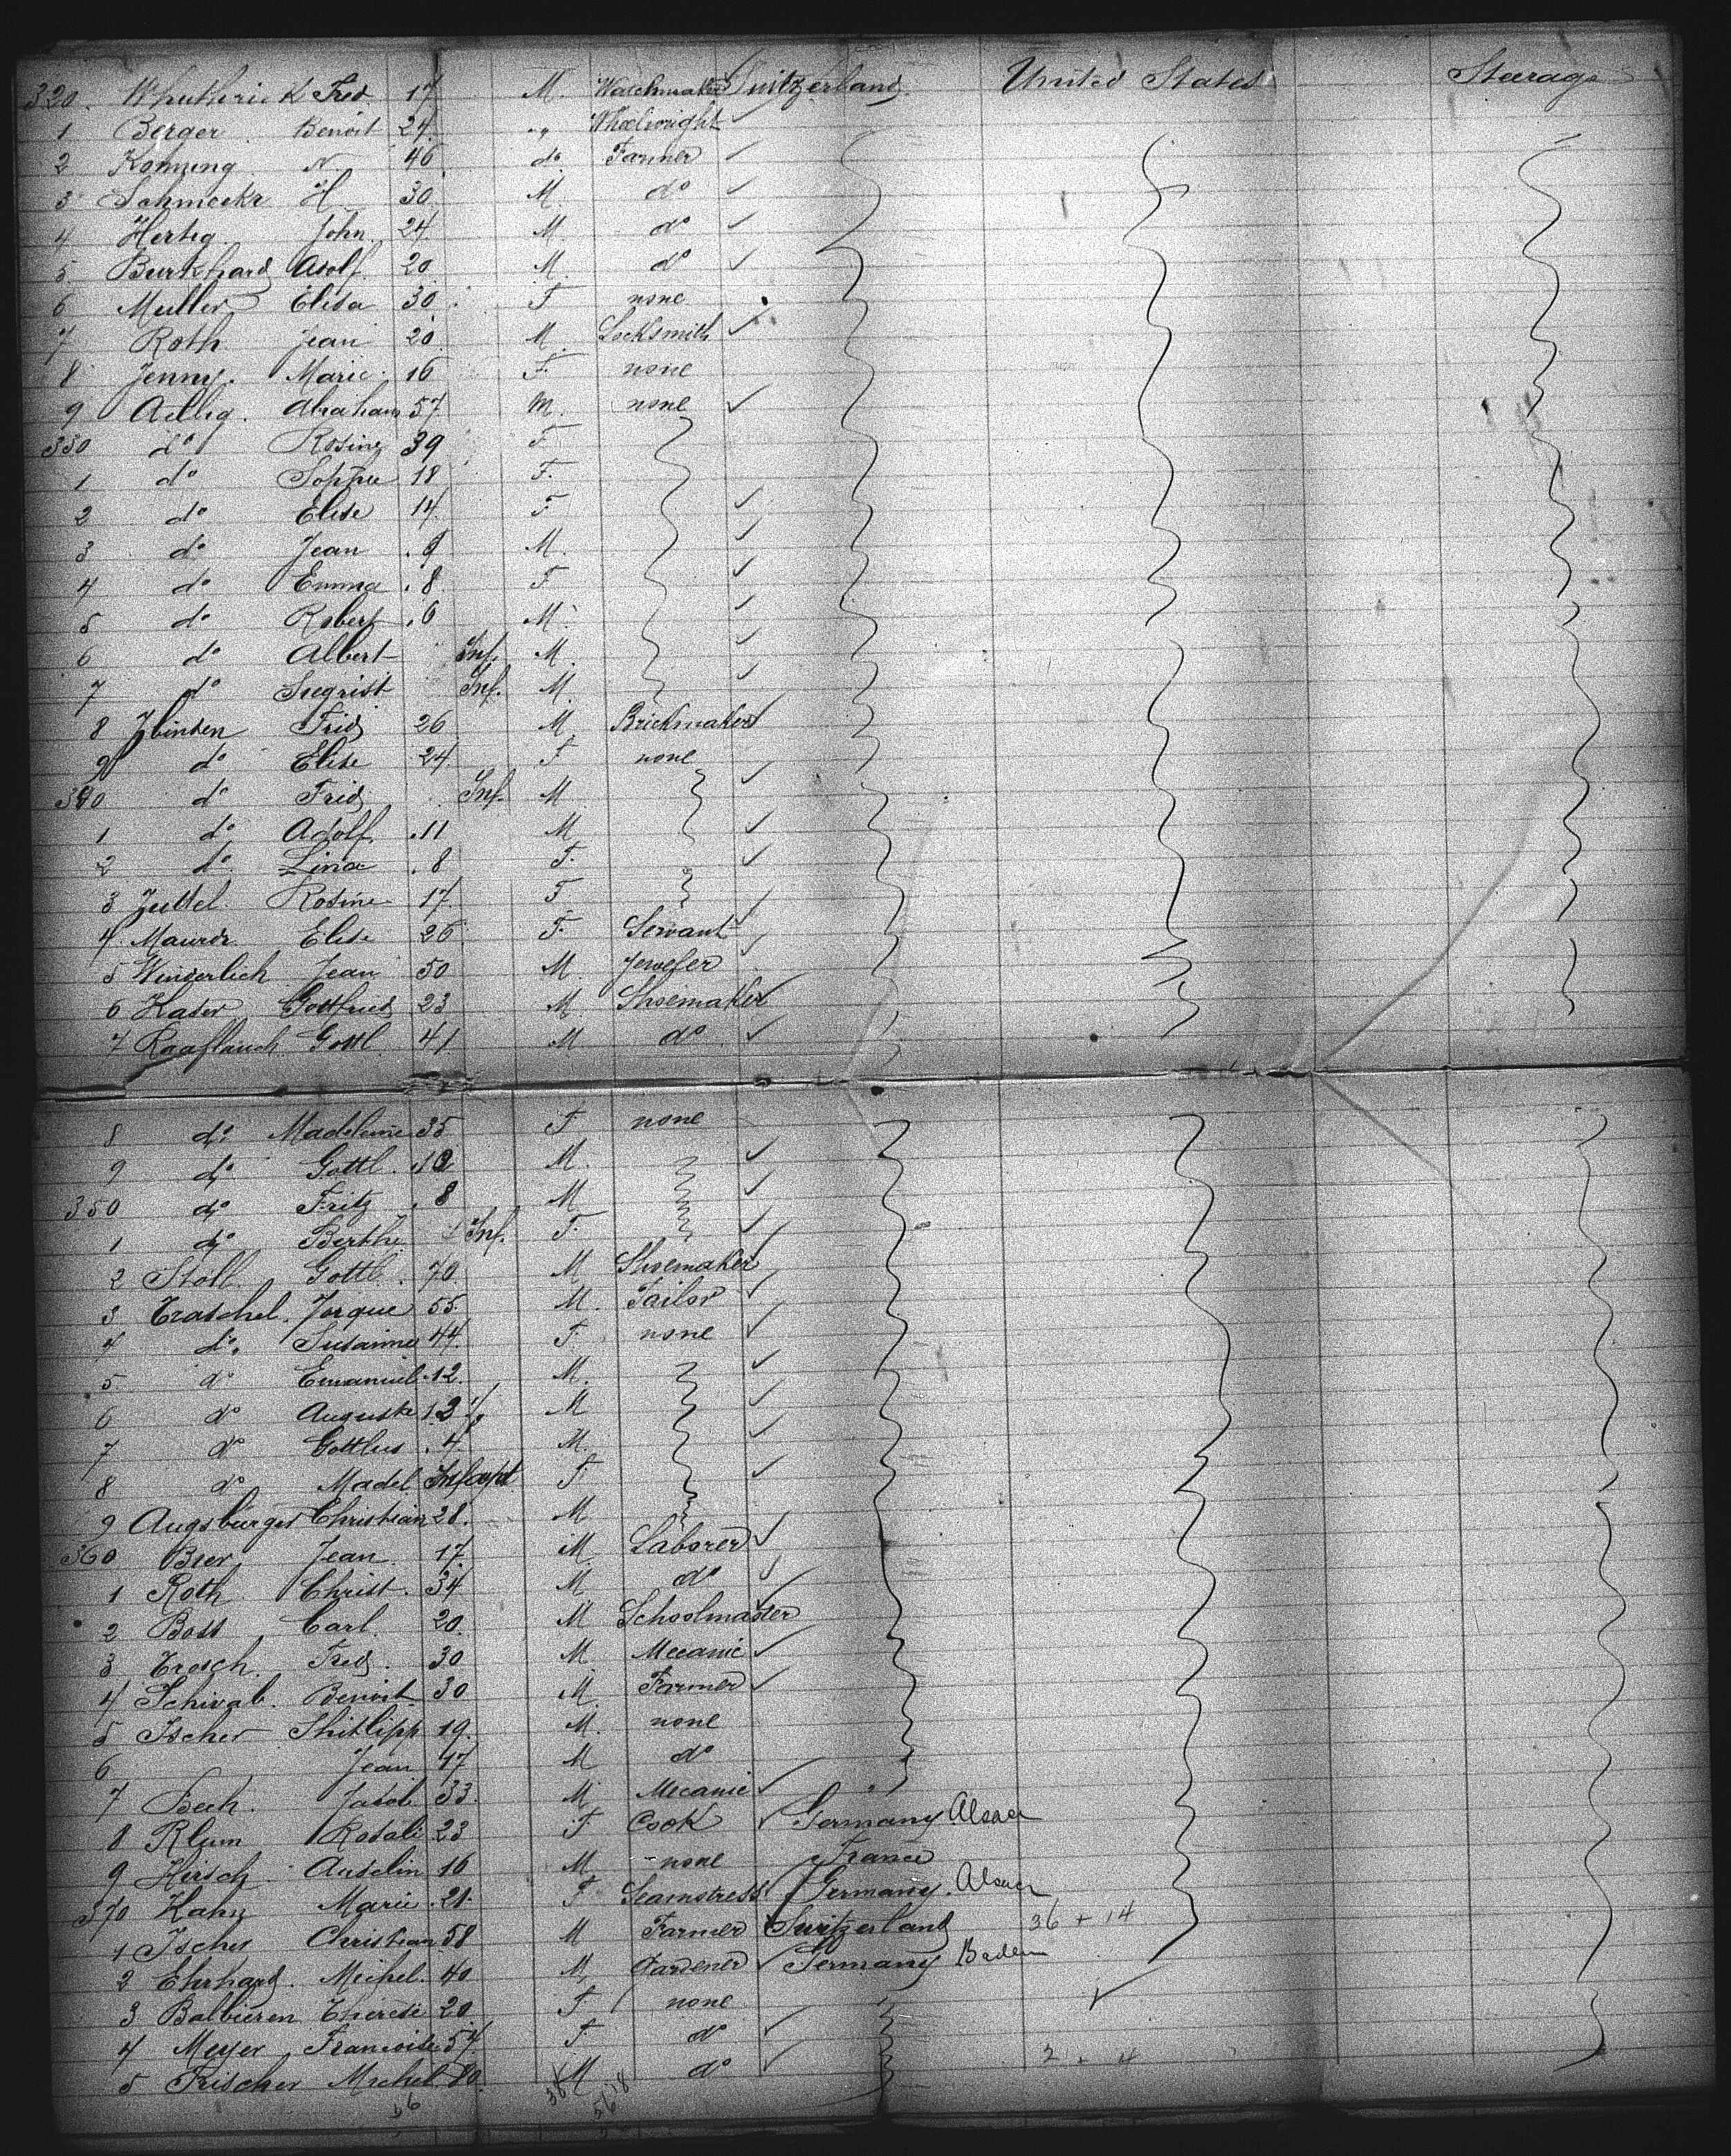 320. Whutherick Fred. 17 M. Watchmaker Switzerland. United States Steerage
1 Berger Benoit 24. " Wheelwright
2 Kohning N 46. do. Farmer
3 Schmeekr H. 30. M. do
4 Hertig John 24. M. do
5. Burkhard Adolf. 20 M. do
6 Muller Elisa 30. F none
7 Roth Jean 20. M. Locksmith
8 Jenny. Marie. 16 F. none
9 Aellig. Abraham 57. M. none
330 do Rosine 39 F
1 do Sophie 18 F.
2 do Elise 14. F
3 do Jean .9 M.
4 do Emma .8 F.
5 do Robert .6 M.
6 do Albert Inf. M.
7 do Siegrist Inf. M
8 Zbinden Frid 26 M Brickmaker
9 do Elise 24 F none
340 do Frid Inf. M
1 do Adolf .11 M
2 do Lina .8 F.
3 Rosine 17. F
4. Maurer Elise 26 F. Servant
5 Winderlich Jean 50 M. Jeweler
6 Kader Gottfried 23 M. Shoemaker
7 Raaflaush Gottl 41 M do
8 do Madeleine 35 F none
9 do Gottl. M.
350 do Fritz .8 M
1 do Berthe Inf. F.
2 Stoll Gottl. 70 M Shoemaker
3 Traschel. Jorque 55. M. Tailor
4 do. Susanne 44. F. none
5. do Emanuel .12. M.
6 do Auguste M
7 do Gottlieb .4. M.
8 do Madel. Infant F
9 Augsburger Christian 28. M
360 Bier Jean. 17. M. Laborer
1 Roth. Christ. 34 M do
2 Boss Carl. 20. M Schoolmaster
3 Trosch. Fred. 30 M. Mecanic
4 Schwab. Benoit. 30 M. Farmer
5 Ischer Phillipp 19. M. none
6 Jean 17 M do
7 Bech. Jacob 33. M. Mecanic
8 Blum Rosali 23 F Cook Germany Alsace
9 Hirsch. Anselin 16 M. none France
370 Kahn Marie .21. F Seamstress Germany. Alsace
1 Ischer Christian 58 M Farmer Switzerland 36 + 14
2 Ehrhard. Michel. 40 M. Gardener Germany Baden
3 Balbieren Therese 20. F none
4 Meyer Francoise 54. F do
5 Frischer Michel 80. M do 2 + 4
56 38 56 18